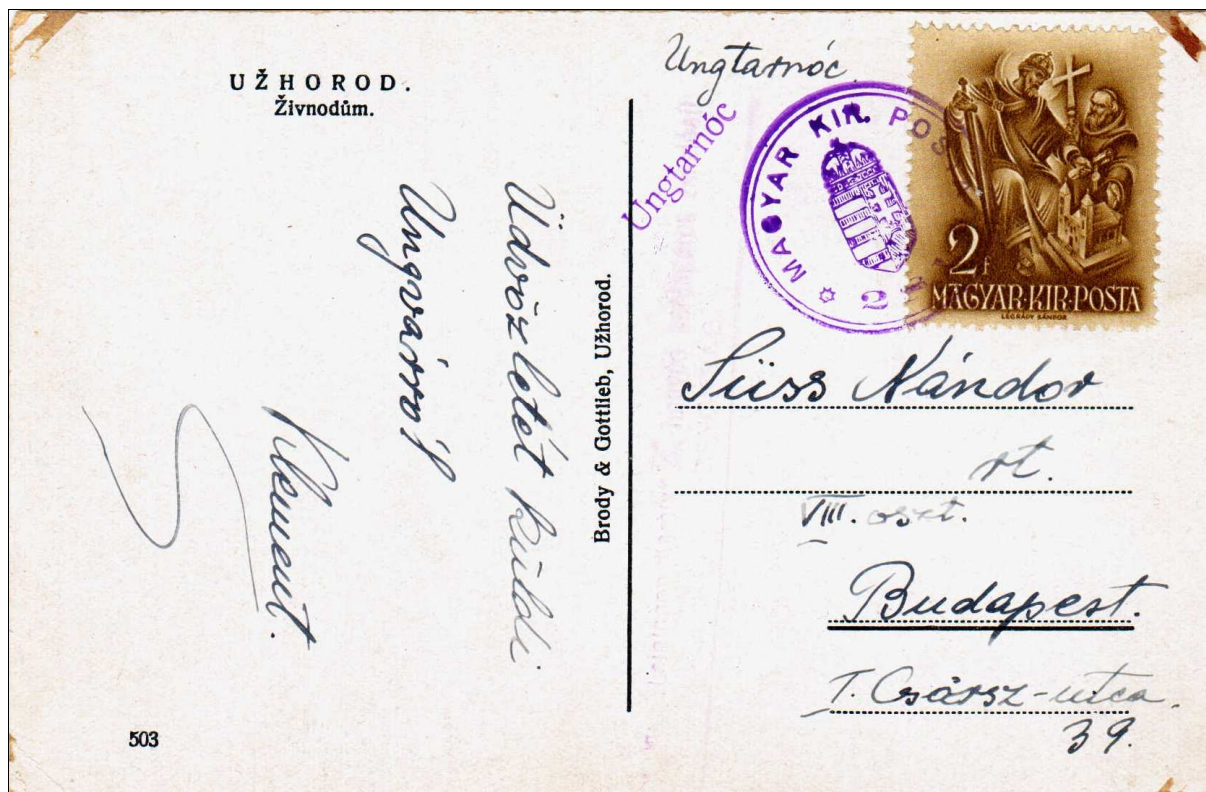 UŽHOROD.
Živnodům.
Üdvözletét küldi
Ungvárról
Klement.
503
Brody & Gottlieb, Užhorod.
Ungtarnóc
Ungtarnóc
MAGYAR KIR. POS
2
2f
MAGYAR·KIR·POSTA
LÉGRÁDY SÁNDOR
Süss Nándor
rt.
VIII. oszt.
Budapest.
I. Csársz-utca.
39.